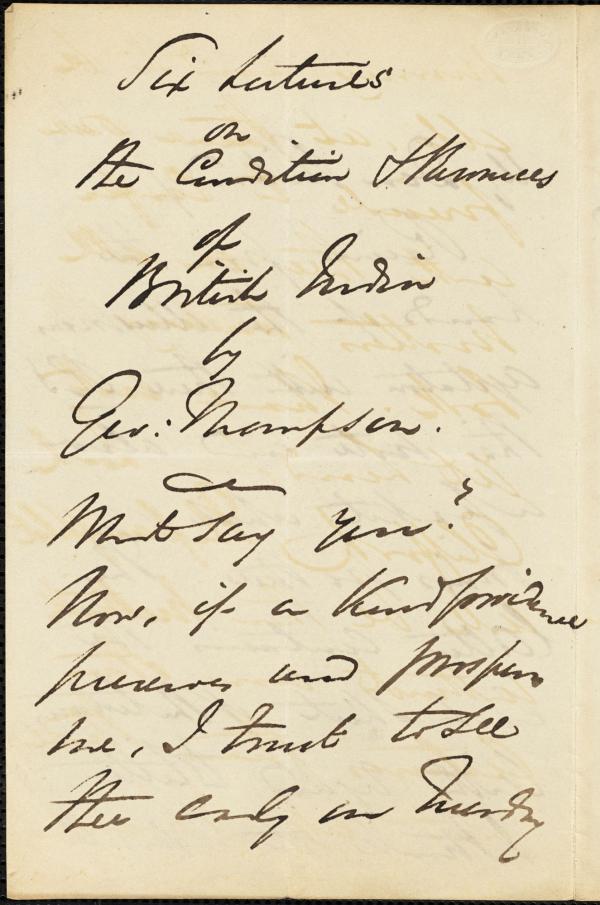 Six Lectures
on
the Condition & Resources
of
British India
by
Geo: Thompson.
What say you?
Now, if a kind providence
preserves and prospers
me, I trust to see
thee early on Tuesday